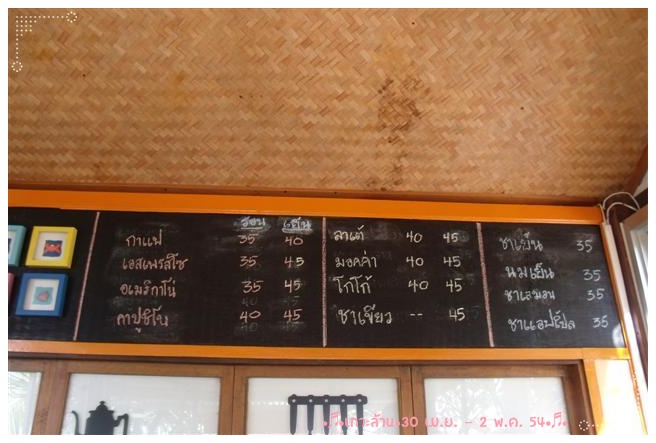 ร้อน เย็น
กาแฟ 35 40
เอสเพรสโซ 35 45
อเมริกาโน่ 35 45
คาปูชิโน 40 45
ลาเต้ 40 45
มอคค่า 40 45
โกโก้ 40 45
ชาเขียว -- 45
ชาเย็น 35
นมเย็น 35
ชาเลมอน 35
ชาแอปเปิ้ล 35
30 เม.ย. - 2 พ.ค. 54